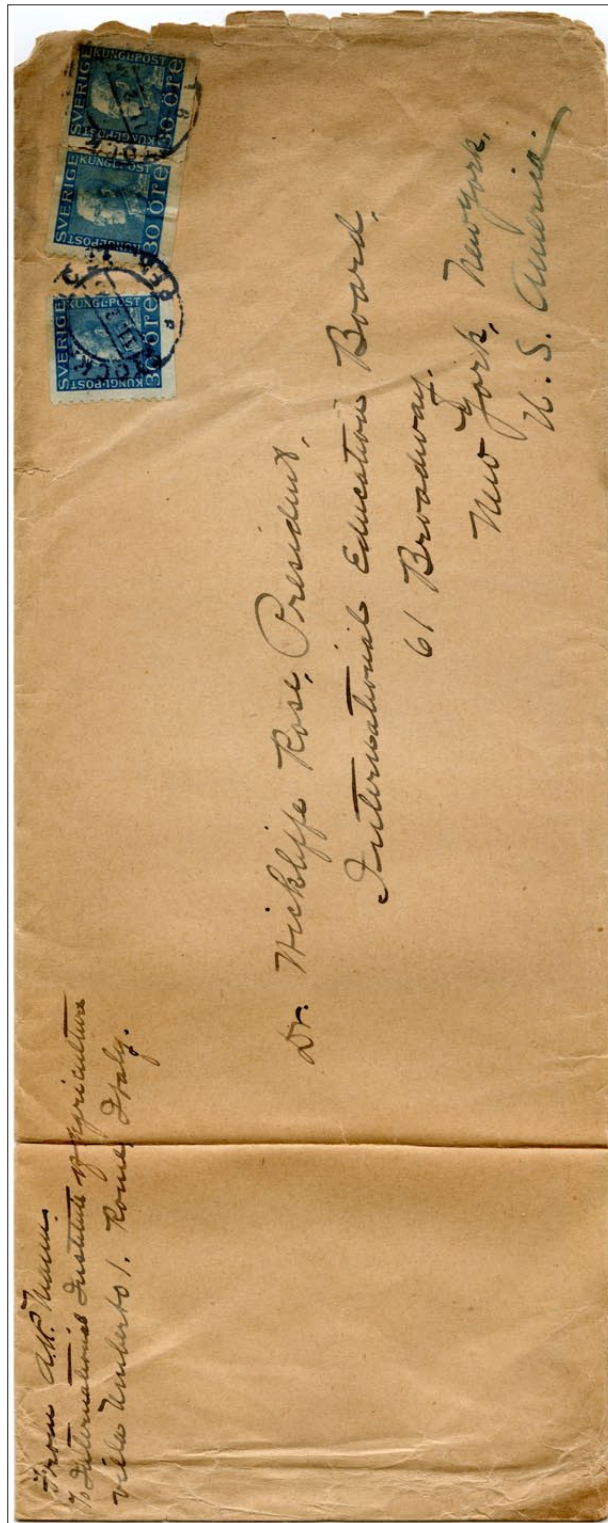 From A.R. Mann.
℅ International Institute of Agriculture
Villa Umberto 1. Rome, Italy.
SVERIGE
KUNGL·POST
30 öre
SVERIGE
KUNGL·POST
30 öre
SVERIGE
KUNGL·POST
30 öre
Dr. Wickliffe Rose, President,
International Education Board,
61 Broadway.
New York, New York,
U. S. America.